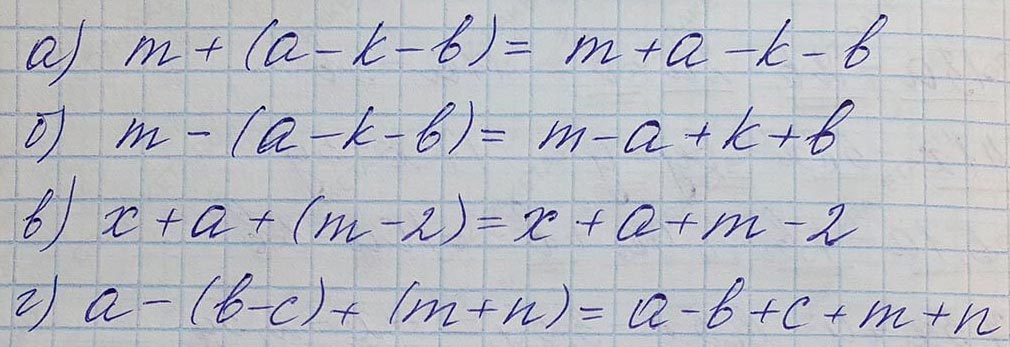 а) m + (a - k - b) = m + a - k - b
б) m - (a - k - b) = m - a + k + b
в) x + a + (m - 2) = x + a + m - 2
г) a - (b - c) + (m + n) = a - b + c + m + n